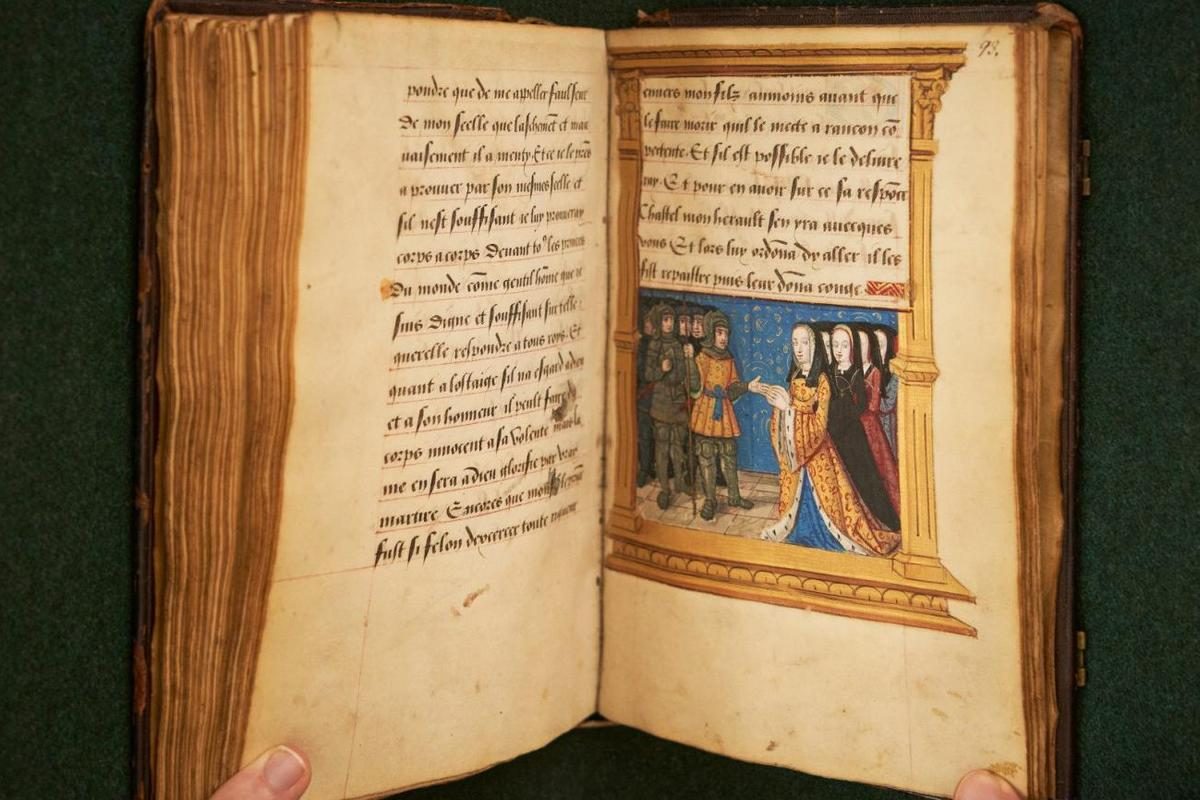 pondre que de me appeller faulseur
De mon seelle que laschemēt et mau
uaisement il a menty. Et ce ie le prēs
a prouuer par son mesmes seelle et
sil nest souffisant ie luy prouueray
corps a corps Deuant to⁹ les princes
Du monde cōme gentil hōme que ie
suis Digne et souffisant sur telle
querelle respondre a tous roys. Et
quant a lostaige sil na esgard a dieu
et a son honneur il peult faire du
corps innocent a sa volente mais la
me en sera a dieu glorifie par vray
martire. Encores que mon
fust si felon dexcercer toute rigueur
93.
enuers mon filz aumoins auant que
le faire morir quil le mecte a rancon cō
pectente. Et sil est possible ie le deliure
ray. Et pour en auoir sur ce sa respōce
Chastel mon herault sen yra auecques
vous Et lors luy ordōna dy aller il les
fist repaistre puis leur dōna conge